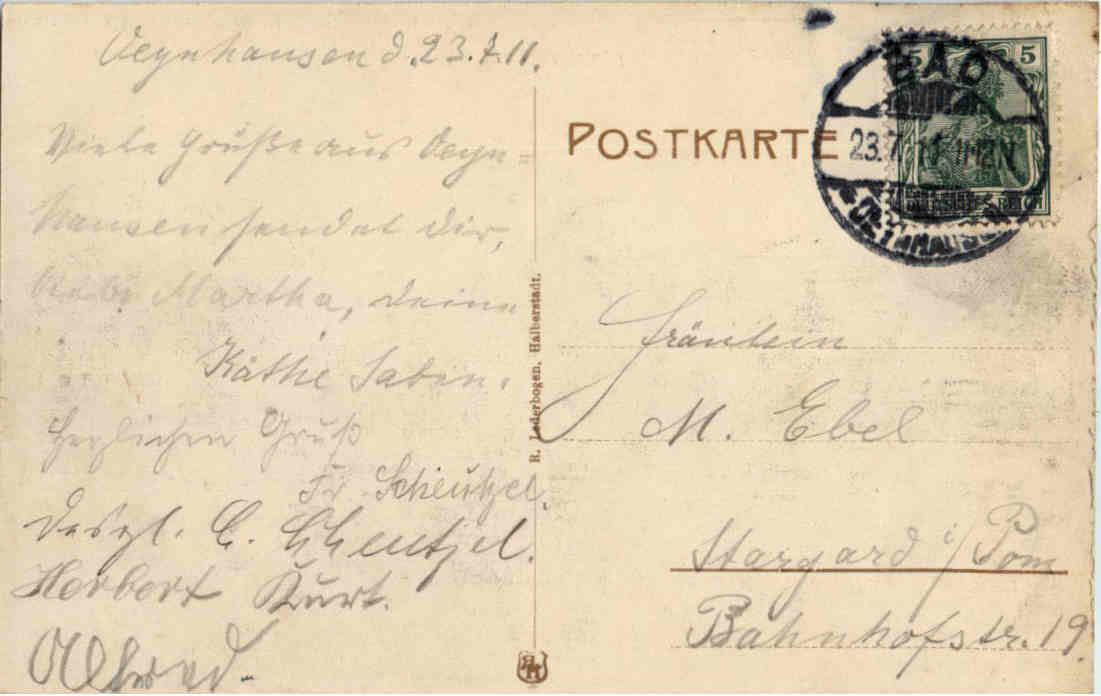 Oeynhausen d. 23.7.11.
Viele Grüße aus Oeyn=
hausen sendet dir,
liebe Martha, deine
Käthe Sabin.
Herzlichen Gruß
Fr. Scheutzel.
Desgl. C. Scheutzel.
Herbert Kurt.
Alfred.
POSTKARTE
5 5
BAD
23.7.11
OEYNHAUSEN
R. Lederbogen. Halberstadt.
Fräulein
M. Ebel
Stargard i/Pom
Bahnhofstr. 19